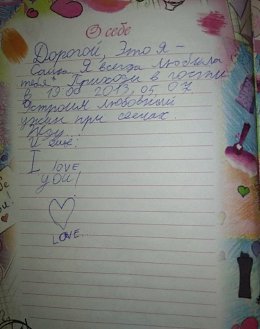 О себе
Дорогой, Это я -
Я всегда любила
тебя. Приходи в гости
в 19:00 2013, 05. 07.
Устроим любовный
ужин при свечах
И ещё!
I love
you!
LOVE...